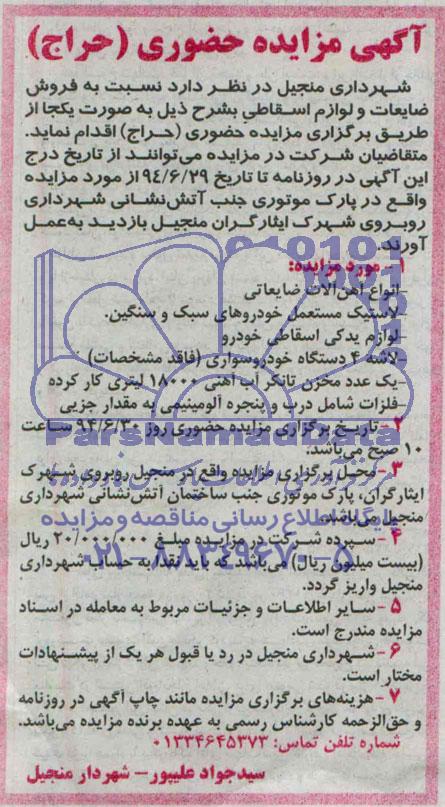 آگهی مزایده حضوری (حراج)
شهرداری منجیل در نظر دارد نسبت به فروش
ضایعات و لوازم اسقاطی بشرح ذیل به صورت یکجا از
طریق برگزاری مزایده حضوری (حراج) اقدام نماید.
متقاضیان شرکت در مزایده می‌توانند از تاریخ درج
این آگهی در روزنامه تا تاریخ ۹۴/۶/۲۹ از مورد مزایده
واقع در پارک موتوری جنب آتش‌نشانی شهرداری
روبروی شهرک ایثارگران منجیل بازدید به‌عمل
آورند.
۱- مورد مزایده:
-انواع آهن‌آلات ضایعاتی
-لاستیک مستعمل خودروهای سبک و سنگین.
-لوازم یدکی اسقاطی خودرو
-لاشه ۴ دستگاه خودروسواری (فاقد مشخصات)
-یک عدد مخزن تانکر آب آهنی ۱۸۰۰۰ لیتری کار کرده
-فلزات شامل درب و پنجره آلومینیمی به مقدار جزیی
۲- تاریخ برگزاری مزایده حضوری روز ۹۴/۶/۳۰ ساعت
۱۰ صبح می‌باشد.
۳- محل برگزاری مزایده واقع در منجیل روبروی شهرک
ایثارگران، پارک موتوری جنب ساختمان آتش‌نشانی شهرداری
منجیل می‌باشد.
۴- سپرده شرکت در مزایده مبلغ ۲۰/۰۰۰/۰۰۰ ریال
(بیست میلیون ریال) می‌باشد که باید نقدا به حساب شهرداری
منجیل واریز گردد.
۵- سایر اطلاعات و جزئیات مربوط به معامله در اسناد
مزایده مندرج است.
۶- شهرداری منجیل در رد یا قبول هر یک از پیشنهادات
مختار است.
۷- هزینه‌های برگزاری مزایده مانند چاپ آگهی در روزنامه
و حق‌الزحمه کارشناس رسمی به عهده برنده مزایده می‌باشد.
شماره تلفن تماس: ۰۱۳۳۴۶۴۵۳۷۳
سیدجواد علیپور- شهردار منجیل
ParsNamadData
پایگاه اطلاع رسانی مناقصه و مزایده
۰۲۱-۸۸۳۴۹۶۷۰-۵